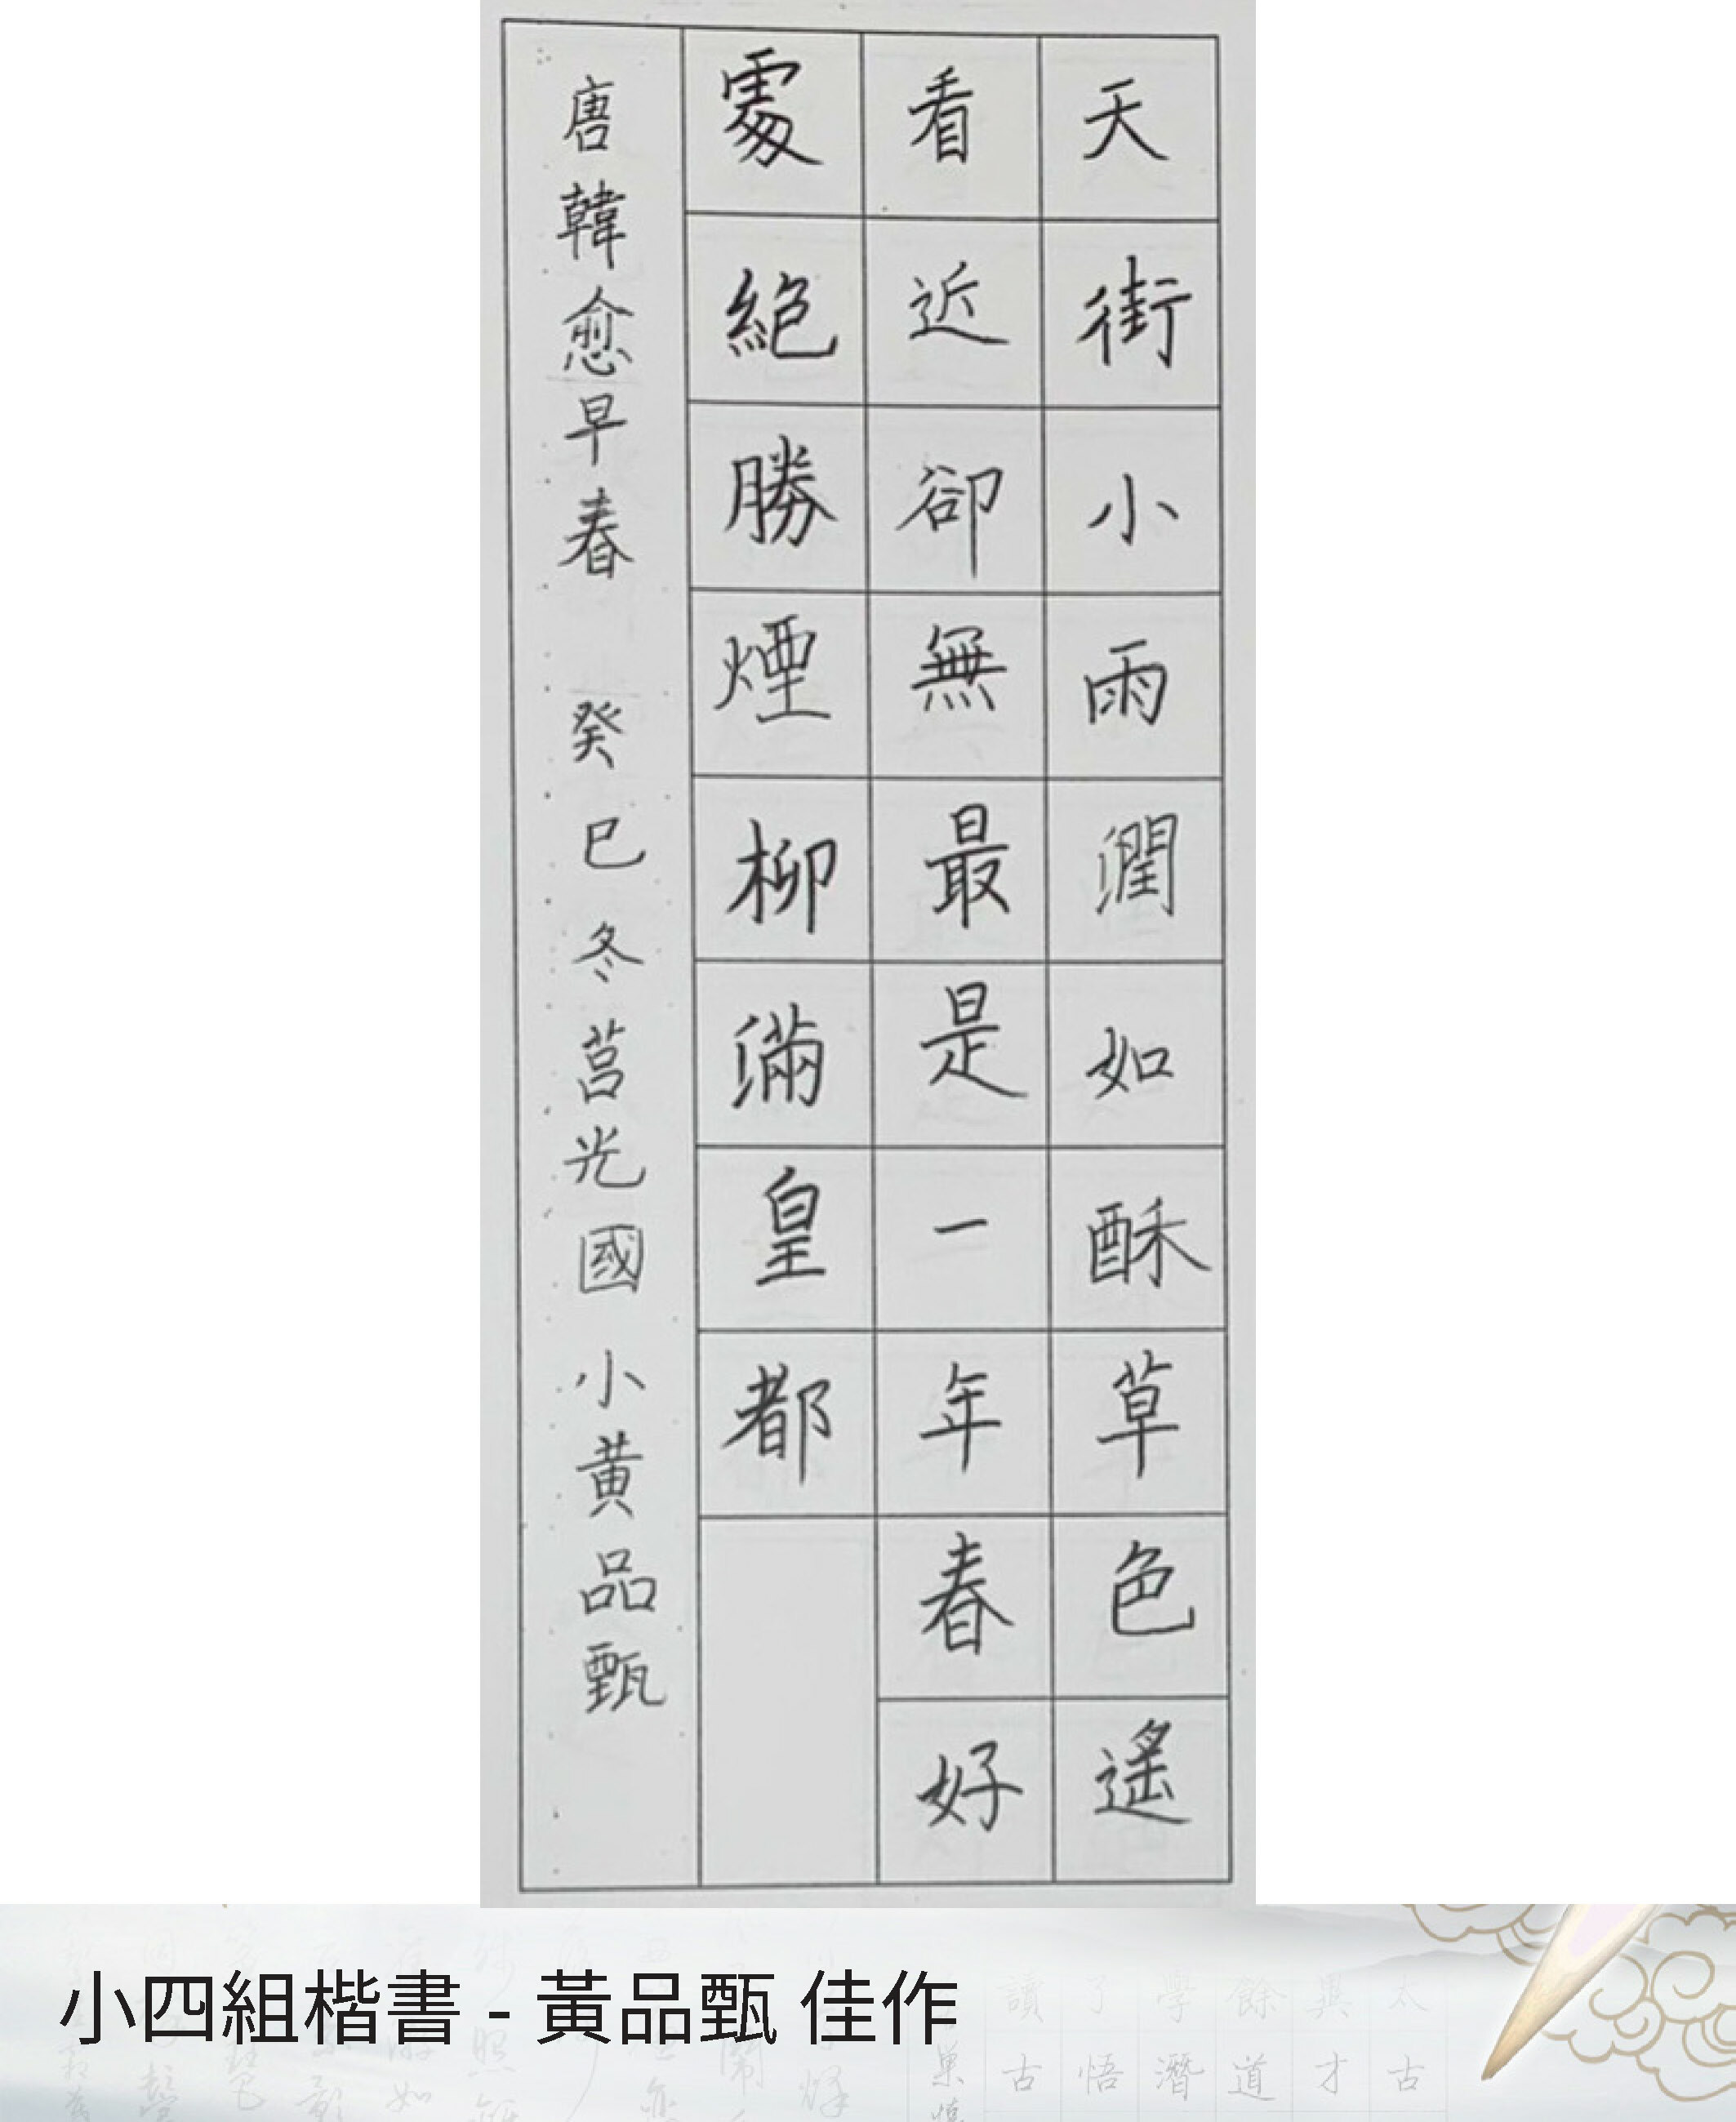 天街小雨潤如酥草色遙
看近卻無最是一年春好
處絕勝煙柳滿皇都
唐韓愈早春 癸巳冬莒光國小黃品甄
小四組楷書 - 黃品甄 佳作